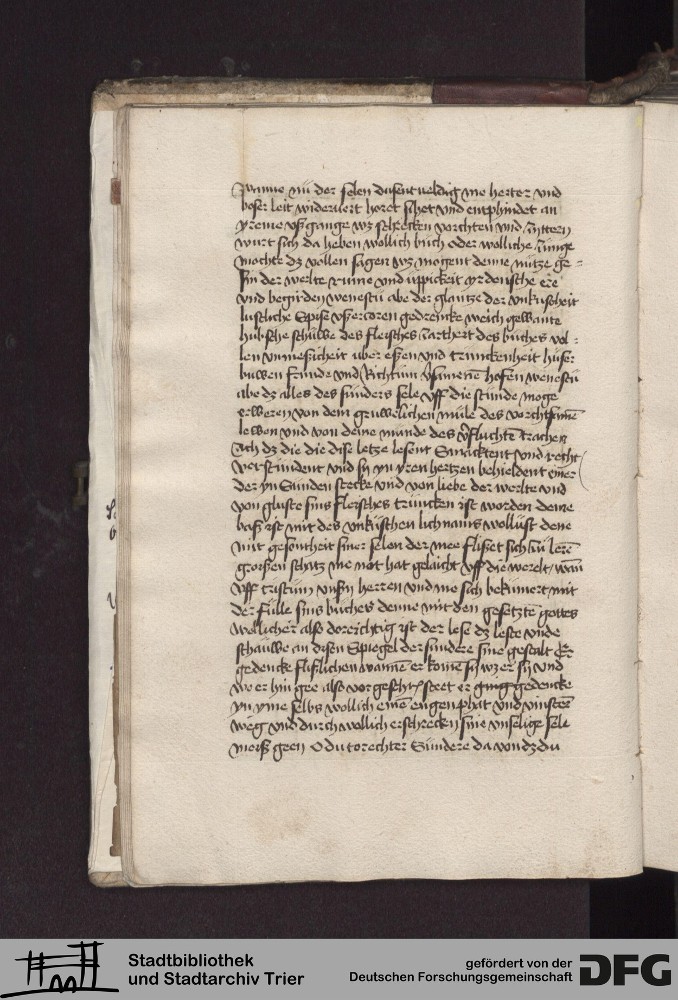 wanne nu der selen dusent veldig me herter vnd
boser leit widerfert horet sihet vnd entphindet an
yreme vßgange wz schrecken vorchten vnd zittern
wurt sich da heben wollich buch oder wolliche zunge
mochte dz vollen sagen wz mogent denne nutze ge-
sin der welte rume vnd uppickeit yrdensche ere
vnd begirden wenestu abe der glantze der vnkuscheit
lustliche Spise vßercoren gedrencke weich gewante
hubsche schulwe des fleisches zartheit des buches vol-
len vnmeßicheit uber eßen vnd trunckenheit huser
buwen frunde vnd Richtum hofen wenestu
abe dz alles des sunders sele vff die stunde moge
erweren von dem gruwelichen mule des vorchtsamen
lewen vnd von deme munde des verfluchten trachen
Ach dz die die dise letze lesent Smacktent vnd recht
verstundent vnd sy yn yren hertzen behieldent einer
der yn Sunden stecke vnd von liebe der werlte vnd
von gluste sins fleisches truncken ist worden deme
baß ist mit des vnkuschen lichnams wollust dene
mit gesontheit siner selen der mee flißet sich
großen schatz me not hat gelaicht vff die werelt wan
vff cristum vnsern herren vnd me sich bekumert mit
der fulle sins buches denne mit den gesetzte gottes
wellicher also doreichtig ist der lese dz leste vnde
schauwe an disen Spiegel der sundere sine gestalt Er
gedencke flißlichen wannen er komen sy wz er sy vnd
wo er hin gee also vorgeschr steet er gedencke
yn yme selbs wollich einen engen phat vnd vinstern
weg vnd durch wollich erschrecken sine vnselige sele
moiß geen O du torechter Sundere da von dz du
Stadtbibliothek
und Stadtarchiv Trier
gefördert von der
Deutschen Forschungsgemeinschaft
DFG